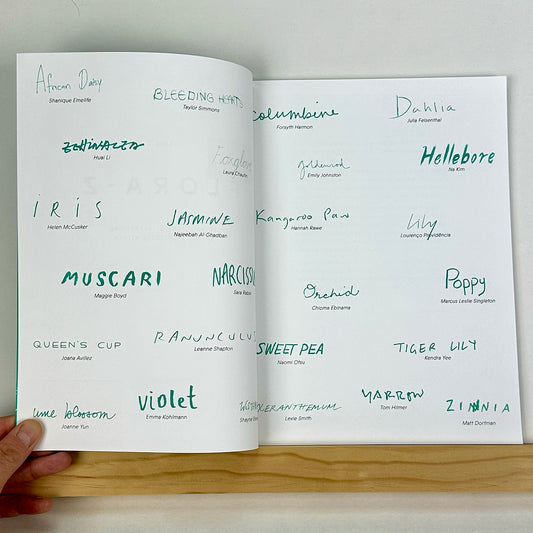 African Daisy
Shanique Emelife
BLEEDING HEARTS
Taylor Simmons
columbine
Forsyth Harmon
Dahlia
Julia Felsenthal
ECHINACEA
Huai Li
Foxglove
Laura Chautin
goldenrod
Emily Johnston
Hellebore
Na Kim
IRIS
Helen McCusker
JASMINE
Najeebah Al-Ghadban
Kangaroo Paw
Hannah Rawe
Lily
Lourenço Providência
MUSCARI
Maggie Boyd
NARCISSU
Sara
Orchid
Chioma Ebinama
Poppy
Marcus Leslie Singleton
QUEEN'S CUP
Joana Avillez
RANUNCULUS
Leanne Shapton
SWEET PEA
Naomi Otsu
TIGER LILY
Kendra Yee
ume blossom
Joanne Yun
violet
Emma Kohlmann
XERANTHEMUM
Lexie Smith
YARROW
Tom Hilmer
ZINNIA
Matt Dorfman
LORA-Z